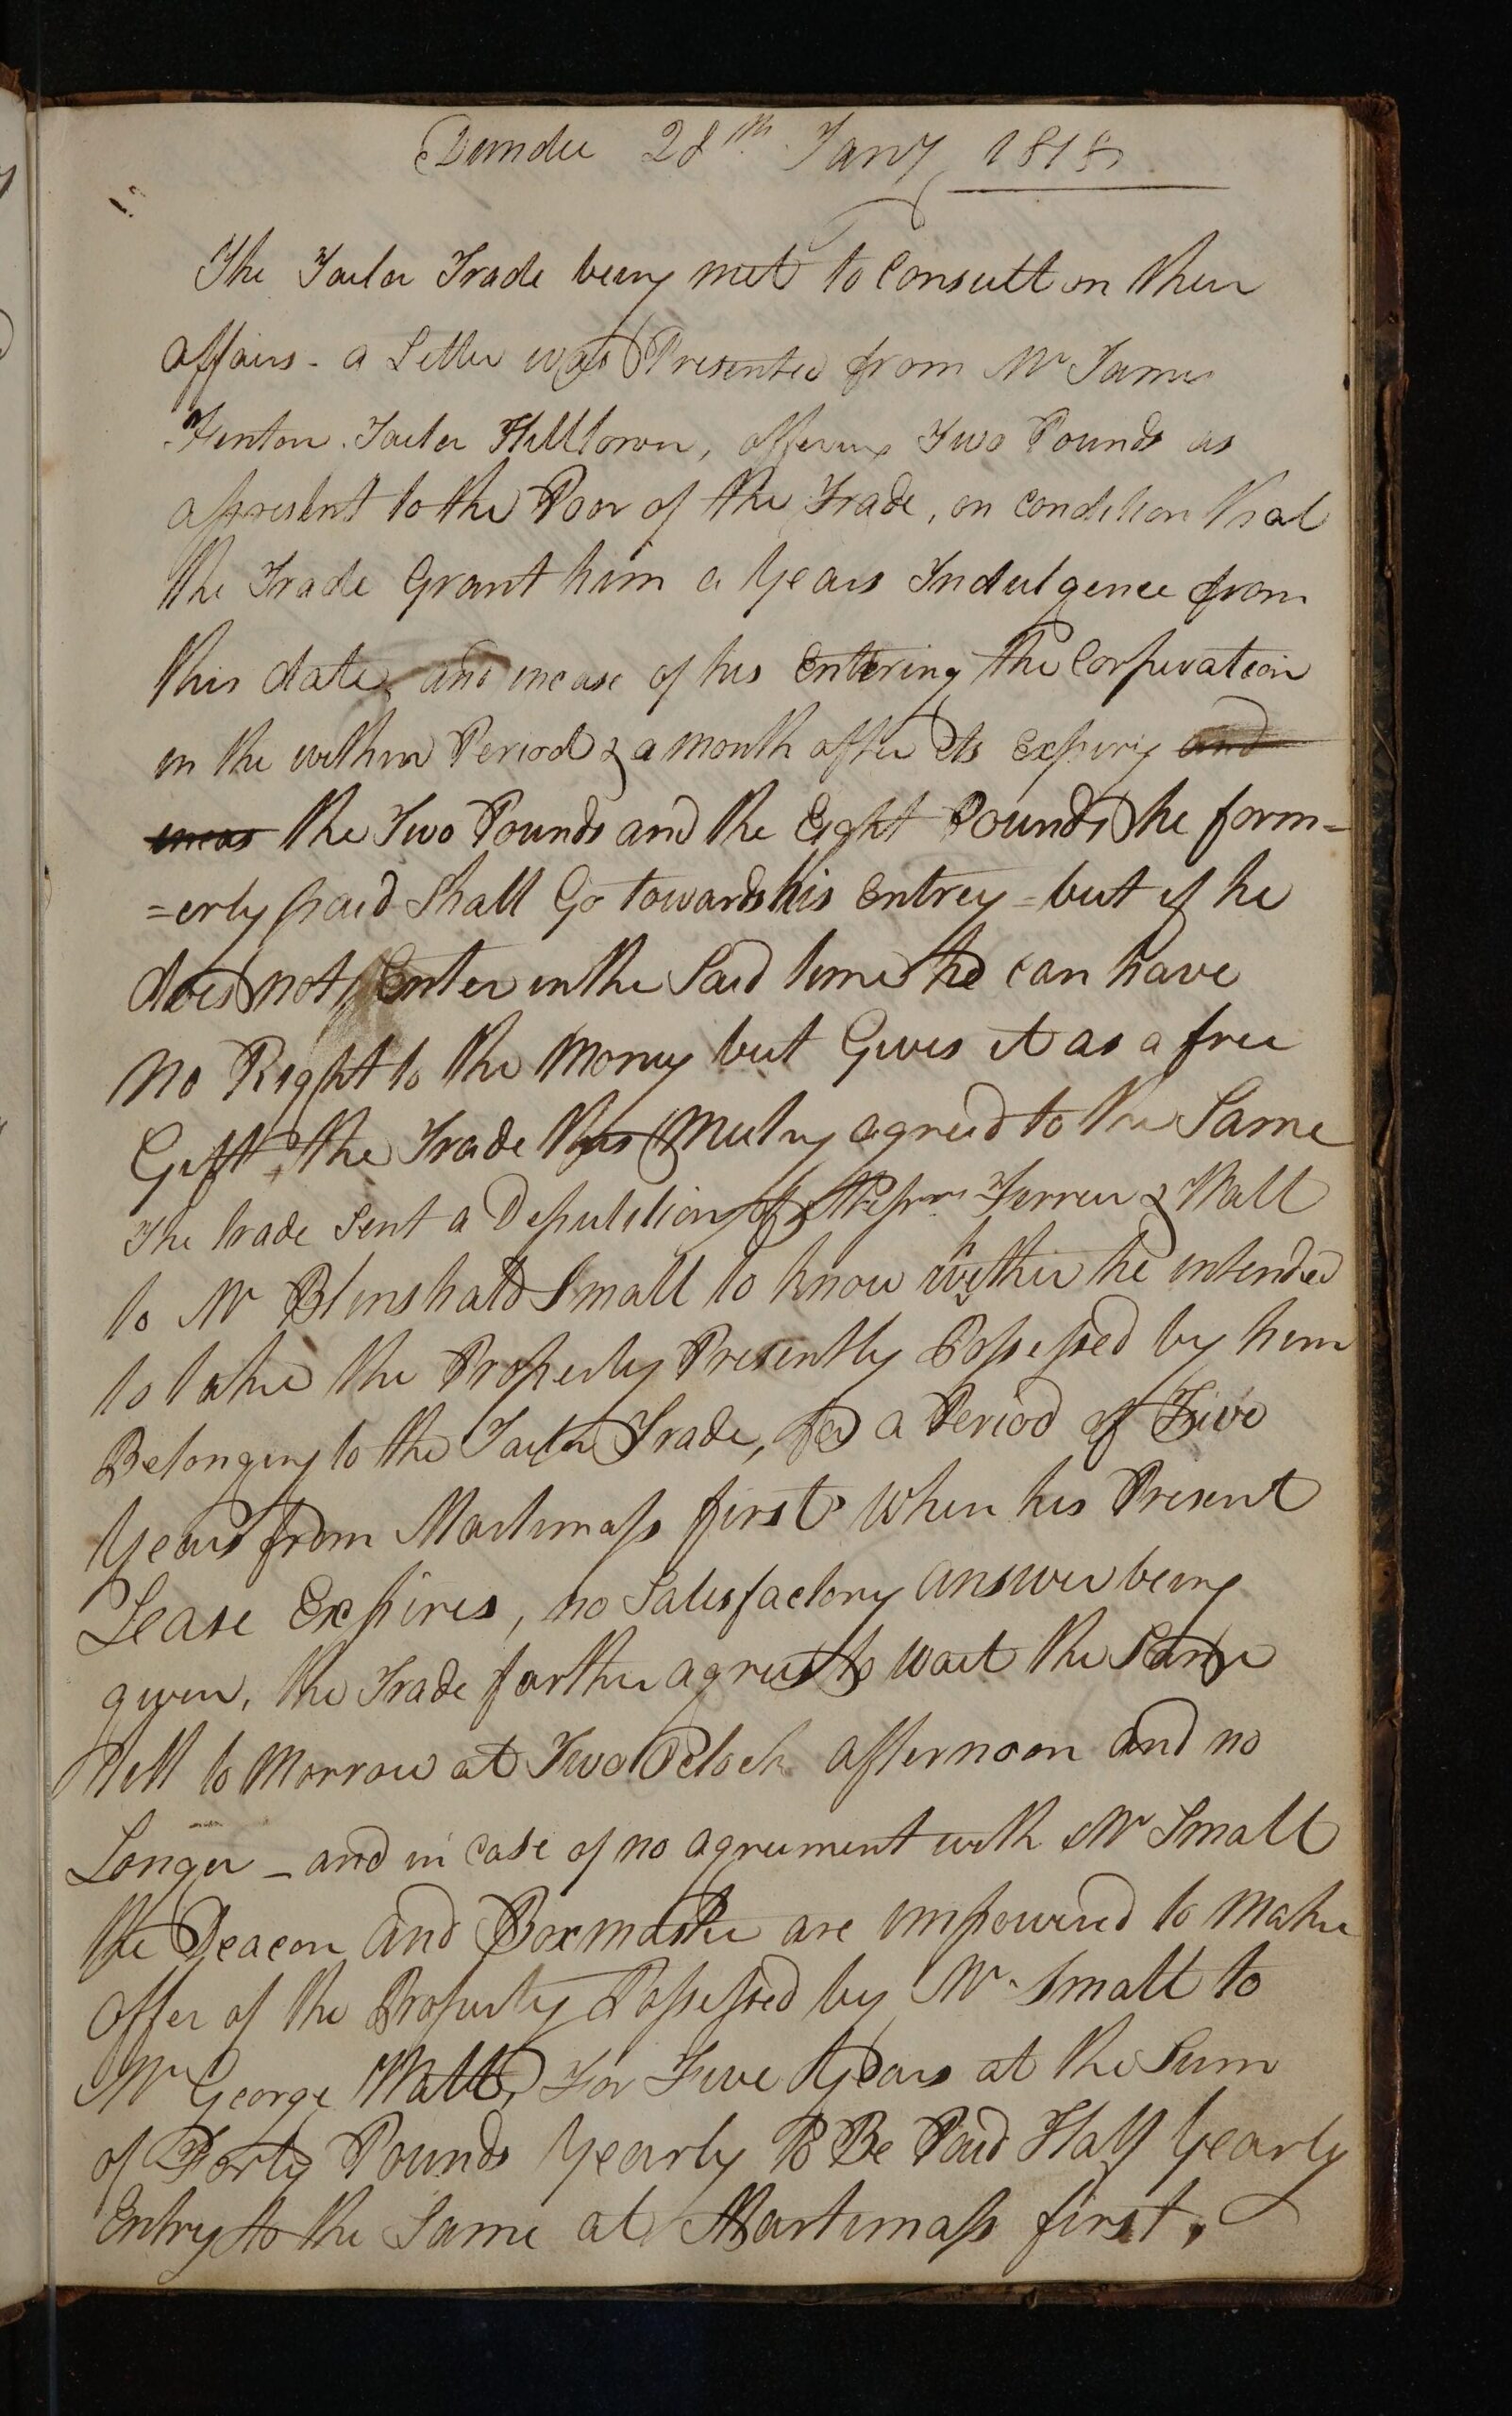 Dundee 28th Jany 1818
The Tailor Trade being met to Consult on their
affairs - a Letter was Presented from Mr James
Fenton Tailor Hilltown, offering Two Pounds as
appresent to the Poor of the Trade, on condition that
the Trade Grant him a Years Indulgence from
this date and incase of his Entering the Corperation
in the within Period & a month after its Expiriy and
incas the Two Pounds and the Eight Pounds he form=
=erly paid Shall Go towards his Entrey = but if he
does not Enter in the Said time he can have
no Right to the Money but Gives it as a free
Gift, the Trade this Meeting agreed to the Same
The trade Sent a Deputation of Messrs Ferrier & Watt
to Mr Blinshald Small to know wither he intended
to take the Property Presently Possessed by him
Belonging to the Tailor Trade, for a Period of Five
Years from Martimass first when his Present
Lease Expires, no Satisfactory answer being
given, the Trade farther agrees to wait the Same
till to Morrow at Two Oclock afternoon and no
Longer - and in case of no agreement with Mr Small
the Deacon and Boxmaster are impowered to make
offer of the Property Possessed by Mr Small to
Mr George Watt, For Five Years at the Sum
of Forty Pounds Yearly To Be Paid Half Yearly
Entry to the Same at Martimass first.